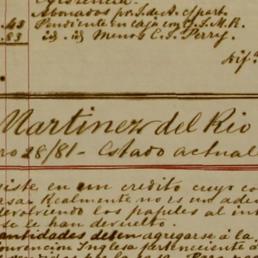 Existencia.
Abonados por J. de A. Esparto
.43 Pendiente en caja con J. M. R.
.83 id. id. Menos C. S. Perry.
Dif.ª
Martinez del Rio
ro 28/81 - Estado actual
iste en un credito cuyo co
sa. Realmente no es un ade
devolviendo los papeles al int
se le han devuelto.
antidades deben agregarse á la
onvencion Inglesa perteneciente á